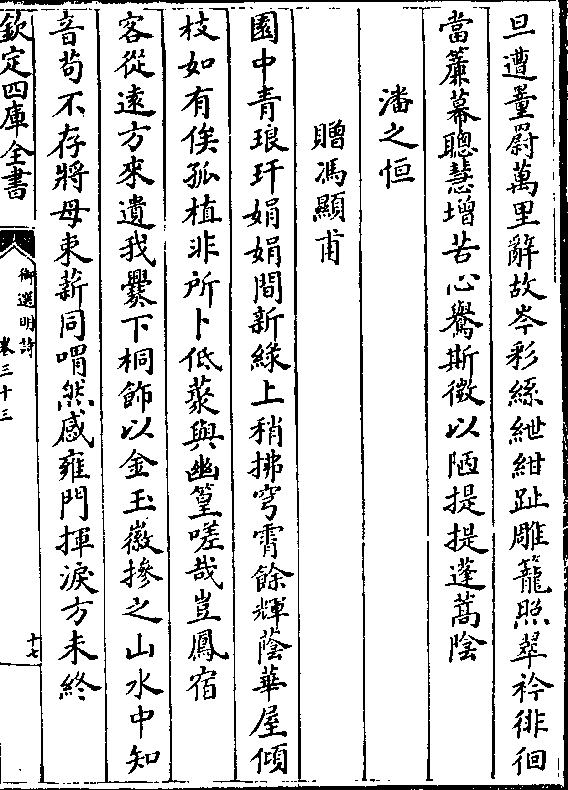 旦遭量罻萬里辭故岑彩絲紲紺趾雕籠照翠衿徘徊
當簾幕聰慧增苦心鷽斯微以陋提提蓬蒿陰
潘之恒
贈馮顯甫
園中青琅玕娟娟間新綠上稍拂穹霄餘輝蔭華屋傾
枝如有俟孤植非所卜低叢與幽篁嗟哉豈鳳宿
客從遠方來遺我爨下桐飾以金玉徽摻之山水中知
音苟不存將毋束薪同喟然感雍門揮淚方未終
欽定四庫全書
御選明詩
卷三十三
十七